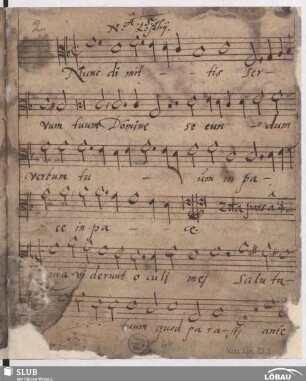 2
Nunc di mit - tis ser-
vum tuum Domine se cun dum
verbum tu - um in pa-
ce in pa - ce.
viderunt o culi mej Saluta-
tuum quod pa ra - sti ante
SLUB
Wir führen Wissen.
LÖBAU